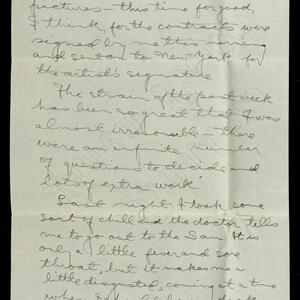 pictures — this time for good,
I think, for the contracts were
signed by me this morning
and sent on to New York for
the artist's signature
The strain of the past week
has been so great that I was
almost irresponsible — there
were an infinite number
of questions to decide and
lots of extra work"
Last night I took some
sort of chill and the doctor tells
me to go out to the San. It is
only a little fever and sore
throat, but it makes me a
little disgusted, coming at a time
when